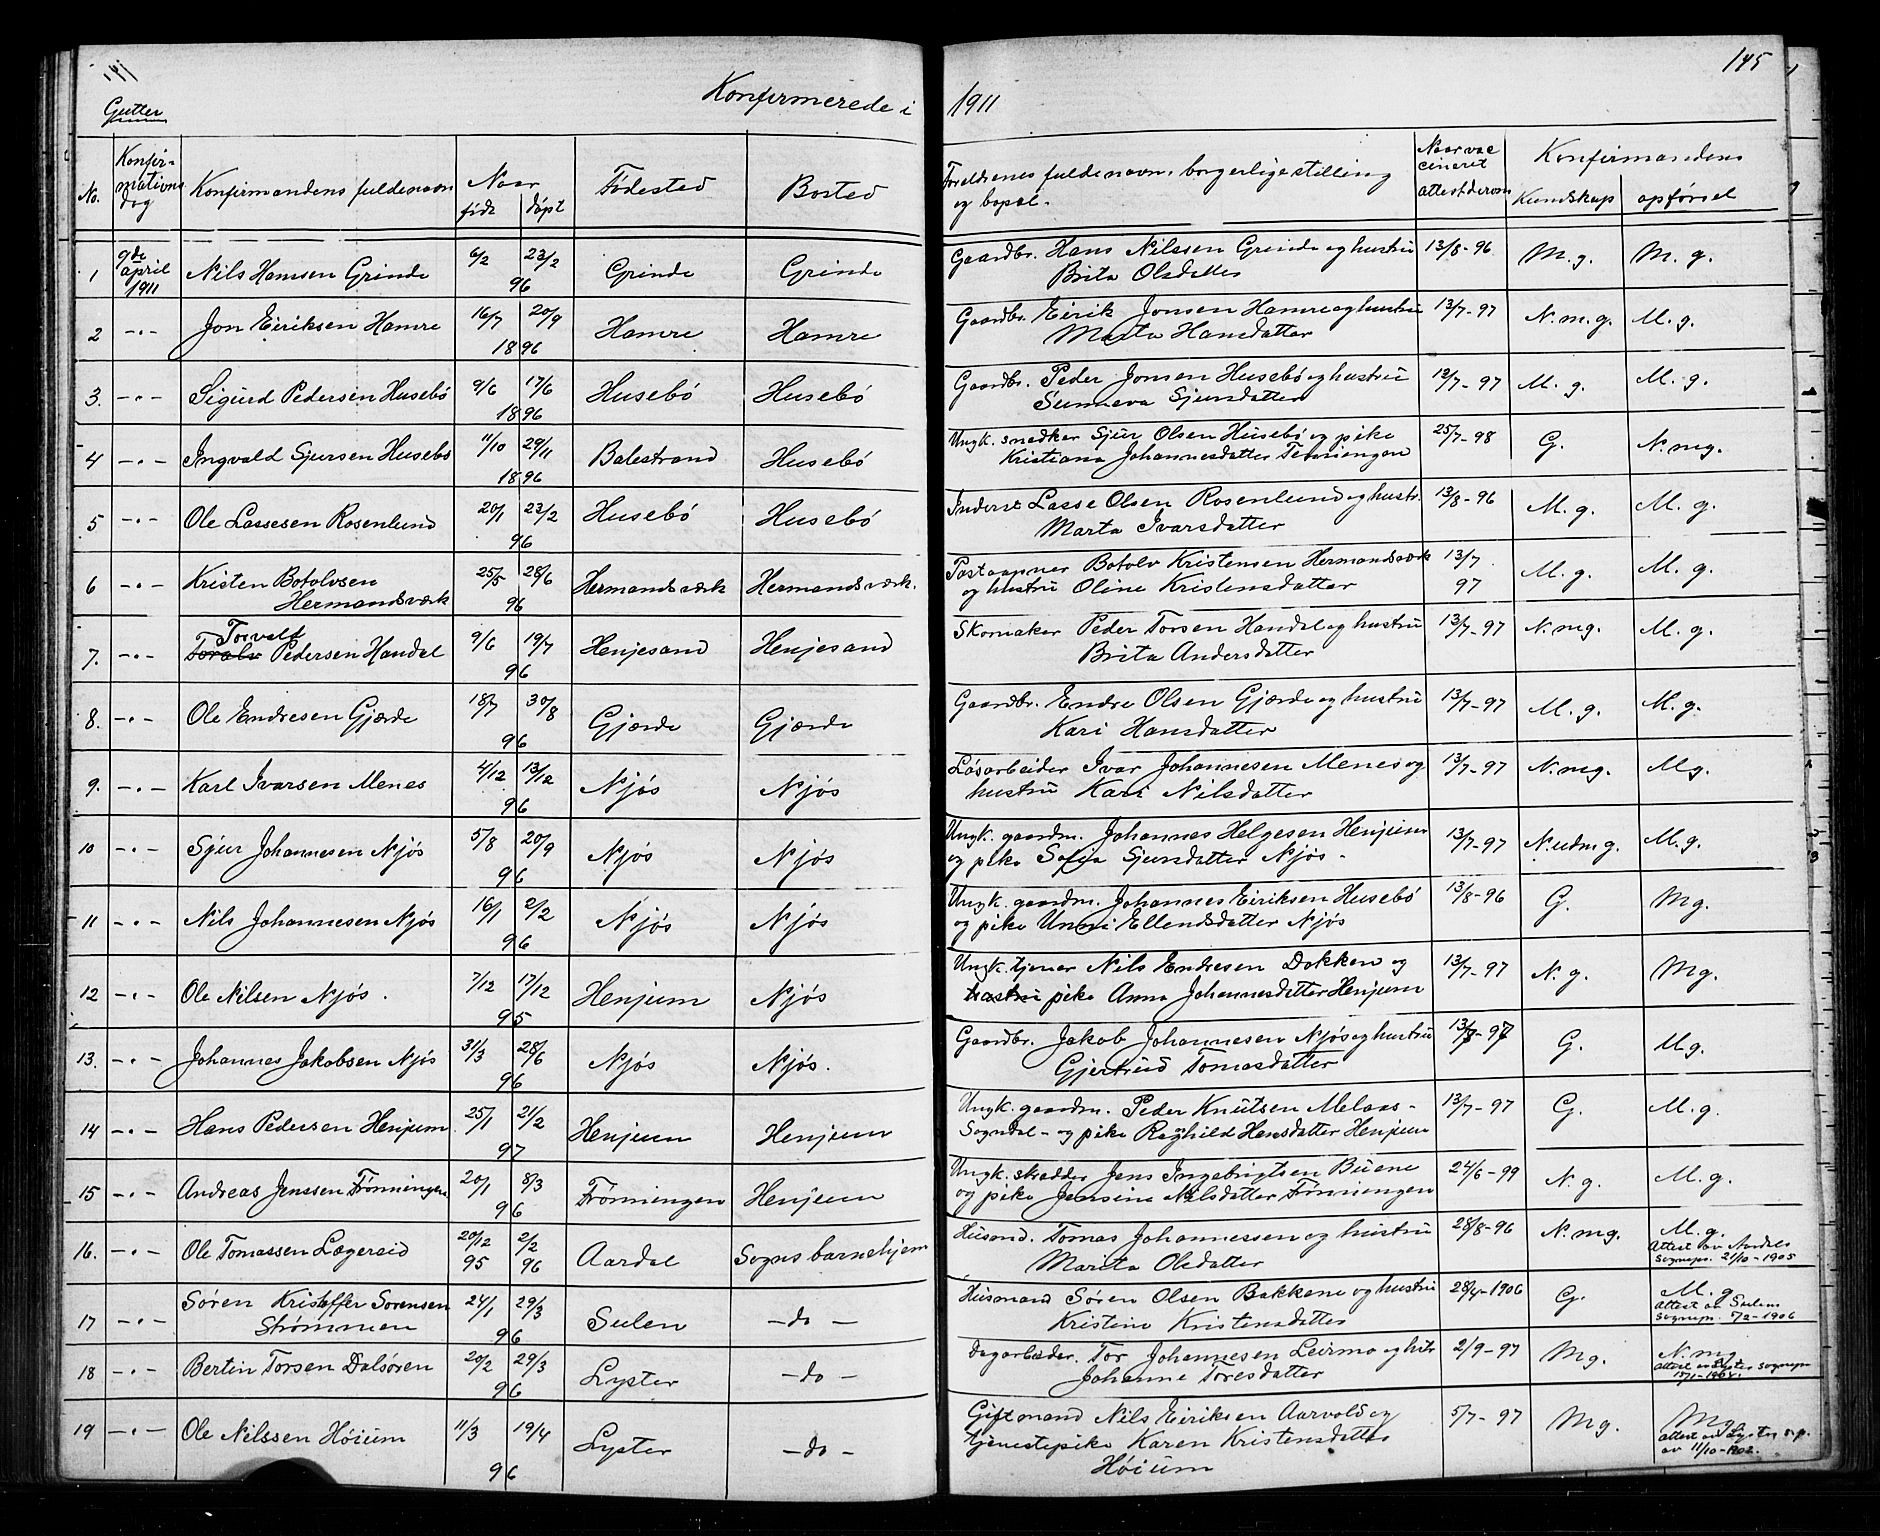 Konfirmerede i 1911
145
Gutter
No. | Konfir-mations dag | Konfirmandens fulde navn | Naar födt | döpt | Födested | Bosted | Foreldrenes fulde navn, borgerlige stilling og bopæl. | Naar vaccineret attest derom | Konfirmandens Kundskap | opførsel
1 | 9de april 1911 | Nils Hansen Grinde | 6/2 | 23/2 96 | Grinde | Grinde | Gaardbr. Hans Nilssen Grinde og hustru Brita Olsdatter | 13/8-96 | M.g. | M.g.
2 | -"- | Jon Eiriksen Hamre | 16/7 | 20/9 1896 | Hamre | Hamre | Gaardbr. Eirik Jonsen Hamre og hustru Marta Hansdatter | 13/7-97 | N.m.g. | M.g.
3. | -"- | Sigurd Pedersen Husebö | 9/6 | 17/6 1896 | Husebö | Husebö | Gaardbr. Peder Jonsen Husebö og hustru Sunneva Sjursdatter | 12/7-97 | M.g. | M.g.
4 | -"- | Ingvald Sjursen Husebö | 11/10 | 29/11 1896 | Balestrand | Husebö | Ungk. snedker Sjur Olsen Husebö og pike Kristiana Johannesdatter | 25/7-98 | G. | N.mg.
5 | -"- | Ole Lassesen Rosenlund | 20/1 | 23/2 96 | Husebö | Husebö | Inderst Lasse Olsen Rosenlund og hustr. Marta Ivarsdatter | 13/8-96 | M.g. | M.g.
6 | -"- | Kristen Botolvsen Hermandsværk | 25/5 | 28/6 96 | Hermandsværk | Hermandsværk. | Postaapner Botolv Kristensen Hermandsværk og hustru Oline Kristensdatter | 13/7 97 | M.g. | M.g.
7. | -"- | Torvald Toralv Pedersen Handal | 9/6 | 19/7 96 | Henjesand | Henjesand | Skomaker Peder Torsen Handal og hustru Brita Andersdatter | 13/7-97 | N.mg. | M.g.
8. | -"- | Ole Endresen Gjærde | 18/7 | 30/8 96 | Gjærde | Gjærde | Gaardbr. Endre Olsen Gjærde og hustru Kari Hansdatter | 13/7-97 | M.g. | M.g.
9. | -"- | Karl Ivarsen Menes | 4/12 | 13/12 96 | Njös | Njös | Lösarbeider Ivar Johannesen Menes og hustru Kari Nilsdatter | 13/7-97 | N.mg. | Mg.
10 | -"- | Sjur Johannesen Njös | 5/8 | 20/9 96 | Njös | Njös | Ungk. gaardm. Johannes Helgesen Henjum og pike Sofia Sjursdatter Njös - | 13/7-97 | N.udm g. | M.g.
11 | -"- | Nils Johannesen Njös | 16/1 | 2/2 96 | Njös | Njös | Ungk. gaardm. Johannes Eiriksen Husebö og pike Unni Ellendsdatter Njös | 13/8-96 | G. | Mg.
12 | -"- | Ole Nilsen Njös. | 7/12 | 17/12 95 | Henjum | Njös | Ungk. tjener Nils Endresen Dokken og hustru pike Anna Johannesdatter Henjum | 13/7-97 | N.g. | Mg.
13. | -"- | Johannes Jakobsen Njös | 31/3 | 28/6 96 | Njös | Njös. | Gaardbr. Jakob Johannesen Njös og hustru Gjertrud Tomasdatter | 13/7-97 | G. | M.g.
14 | -"- | Hans Pedersen Henjum | 25/1 | 21/2 97 | Henjum | Henjum | Ungk. gaardm. Peder Knutsen Melaas - Sogndal - og pike Raghild Hansdatter Henjum | 13/7-97 | G. | M.g.
15 | -"- | Andreas Jenssen Frönningen | 20/1 | 8/3 96 | Frönningen | Henjum | Ungk. skredder Jens Ingebrigtsen Buene og pike Jensine Nilsdatter Frönningen | 24/6-99 | N.g. | M.g.
16. | -"- | Ole Tomassen Lægereid | 20/12 95 | 2/2 96 | Aardal | Sogns barnehjem | Husmd. Tomas Johannessen og hustru Marita Olsdatter | 28/8-96 | N.mg. | M.g. Attest av Aardals sognepr. 21/10-1905
17 | -"- | Søren Kristoffer Sorensen Strømmen | 24/1 | 29/3 96 | Sulen | -do- | Husmand Søren Olsen Bakkene og hustru Kristine Kristensdatter | 28/4-1906 | G. | M.g attest av Sulens sognepr. 5/2-1906
18 | -"- | Bertin Torsen Dalsören | 20/2 | 29/3 96 | Lyster | -do- | Dagarbeder. Tor Johannesen Leirmo og hstr Johanne Toresdatter | 2/9-97 | Mg. | N.mg attest av Lyster sognepr.
19 | -"- | Ole Nilssen Höium | 11/3 | 19/4 96 | Lyster | -do- | Gift mand Nils Eiriksen Aarvold og tjenestepike Karen Kristensdatter Höium | 5/7-97 | Mg. | Mg. attest av Lyster s.p. av 11/10-1902.